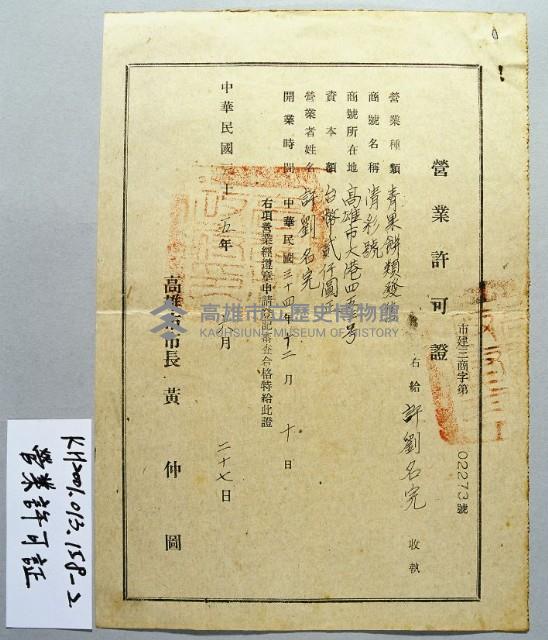 營業許可證
市建三商字第02273號
右給 許劉名完 收執
營業種類 青果餅類
商號名稱 清彩號
商號所在地 高雄市大港四五号
資本額 台幣貳仟圓
營業者姓名 許劉名完
開業時間 中華民國三十四年十二月十日
右項營業經遵章申請登記審查合格特給此證
中華民國三十五年 月二十七日
高雄市市長 黃仲圖
高雄市立歷史博物館
KAOHSIUNG MUSEUM OF HISTORY
KH2001.013.158-2
營業許可証